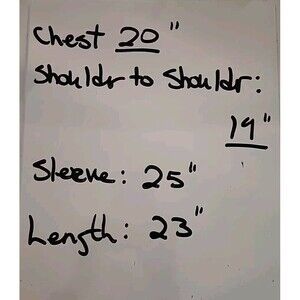 Chest 20"
Shouldr to Shouldr:
19"
Sleeve: 25"
Length: 23"